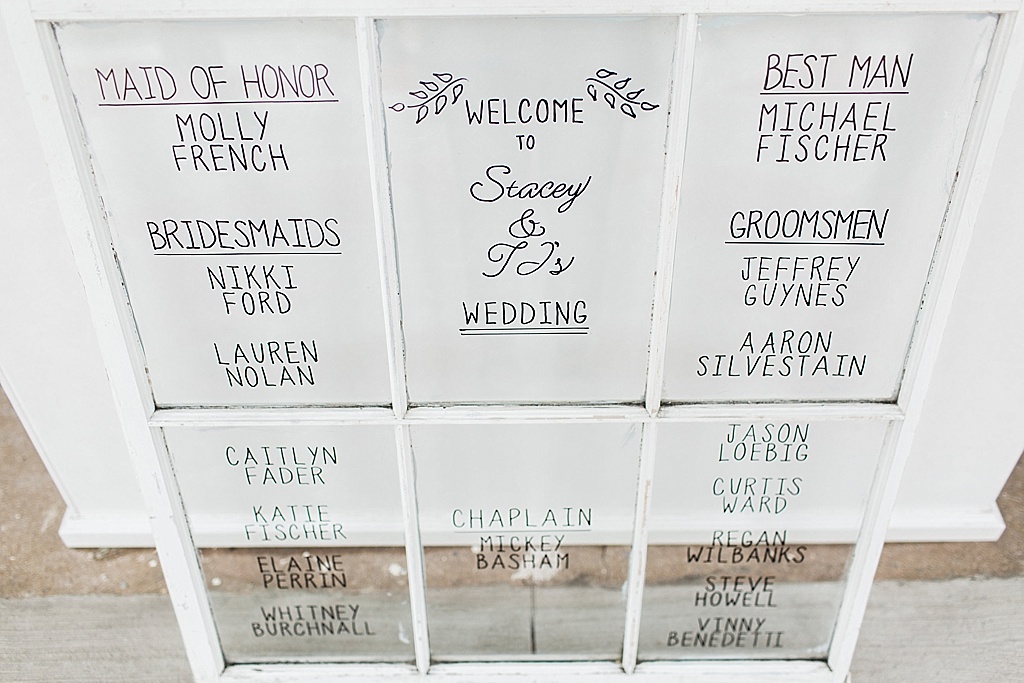 MAID OF HONOR
MOLLY
FRENCH
BRIDESMAIDS
NIKKI
FORD
LAUREN
NOLAN
CAITLYN
FADER
KATIE
FISCHER
ELAINE
PERRIN
WHITNEY
BURCHNALL
WELCOME
TO
Stacey
&
TJ's
WEDDING
CHAPLAIN
MICKEY
BASHAM
BEST MAN
MICHAEL
FISCHER
GROOMSMEN
JEFFREY
GUYNES
AARON
SILVESTAIN
JASON
LOEBIG
CURTIS
WARD
REGAN
WILBANKS
STEVE
HOWELL
VINNY
BENEDETTI